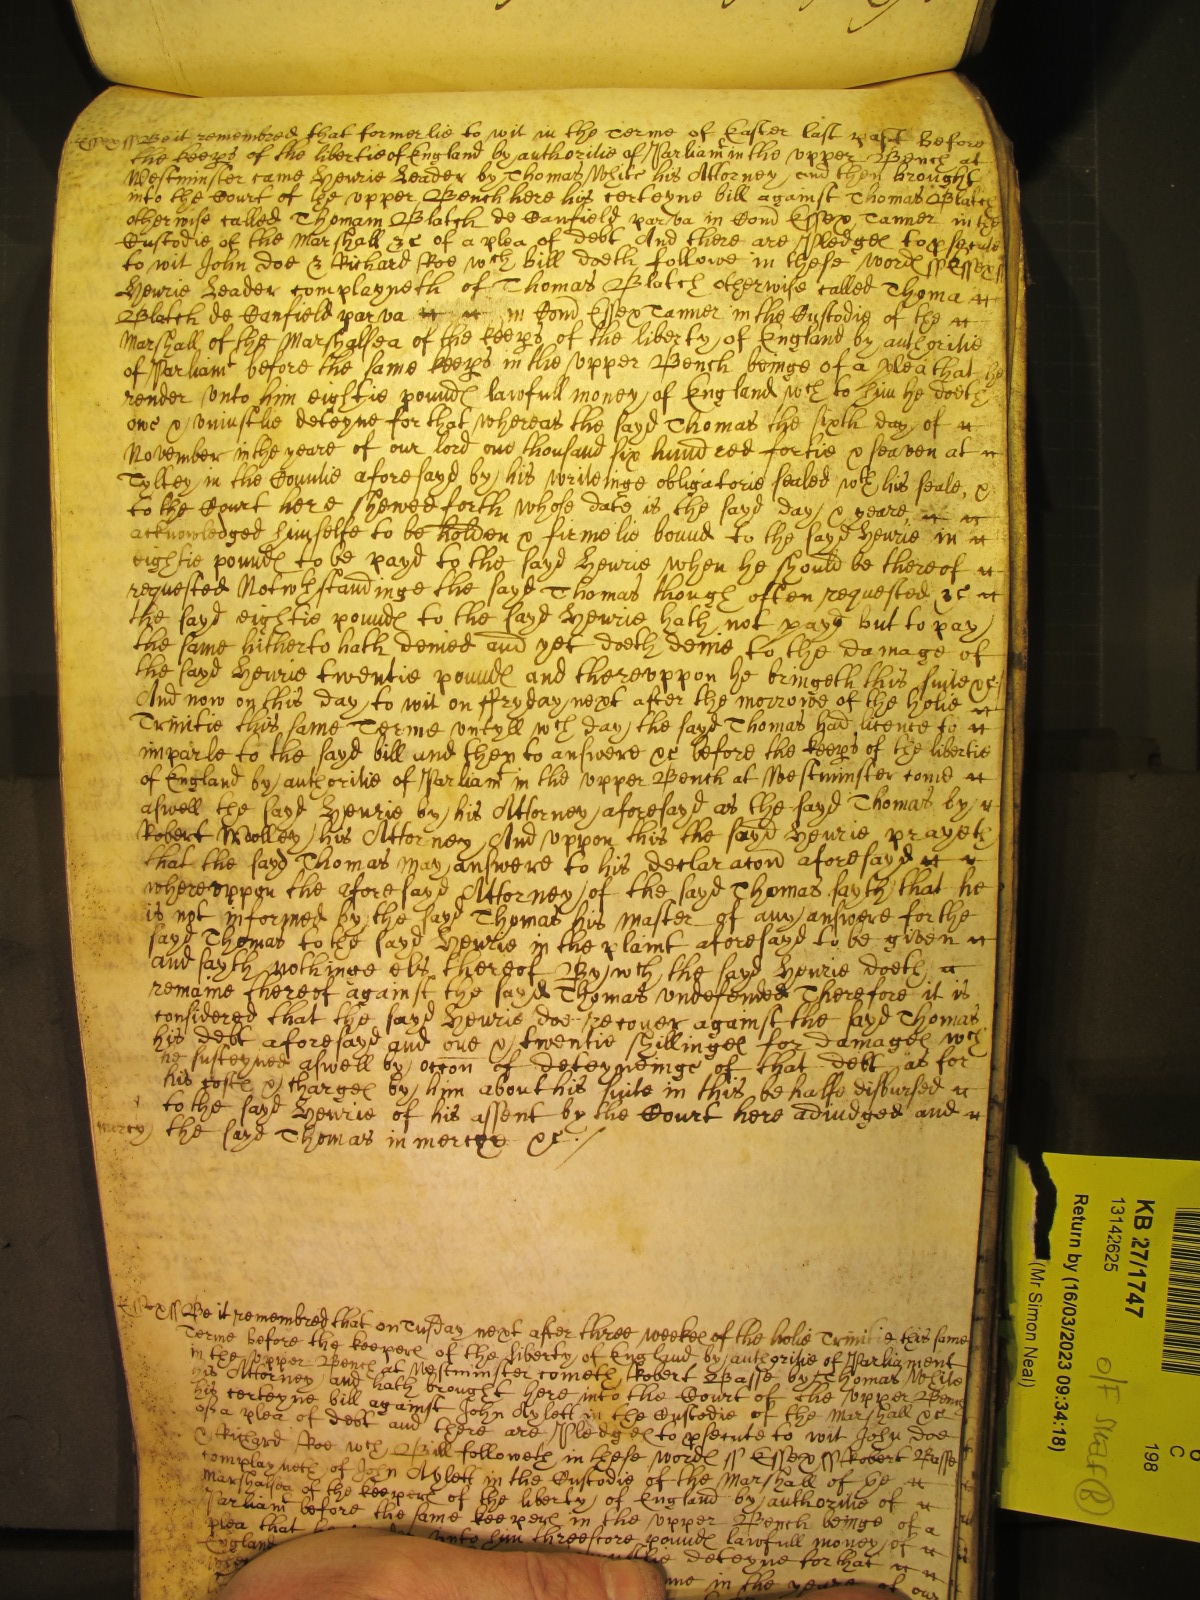 Essex ss Be it remembred that formerlie to wit in the Terme of Easter last past before
the keeps of the libertie of England by authoritie of Parliamt in the vpper Bench at
Westminster came Henrie Leader by Thomas White his Attorney and then brought
into the Court of the vpper Bench here his certeyne bill against Thomas Blatch
otherwise called Thomam Blatch de Canfield parva in Com Essex Tanner in the
Custodie of the Marshall &c of a plea of debt And there are Pledges to psecute
to wit John Doe & Richard Roe wch bill doeth followe in these words ss Essex ss
Henrie Leader complayneth of Thomas Blatch otherwise called Thoma
Blatch de Canfield parva in Com Essex Tanner in the Custodie of the
Marshall of the Marshalsea of the keeps of the liberty of England by authoritie
of Parliamt before the same keeps in the vpper Bench beinge of a plea that he
render vnto him eightie pounds lawfull money of England wch to him he doeth
owe & vniustlie deteyne for that whereas the sayd Thomas the sixth day of
November in the yeare of our lord one thousand six hundred fortie & seaven at
Tyltey in the Countie aforesayd by his writeinge obligatorie sealed wth his seale, &
to the Court here shewed forth whose date is the sayd day & yeare
acknowledged himselfe to be holden & firmelie bound to the sayd Henrie in
eightie pounds to be payd to the sayd Henrie when he should be thereof
requested Notwthstandinge the sayd Thomas though often requested &c
the sayd eightie pounds to the sayd Henrie hath not payd but to pay
the same hitherto hath denied and yet doeth denie to the damage of
the sayd Henrie twentie pounds and therevppon he bringeth this suite &c
And now on this day to wit on ffryday next after the morrowe of the holie
Trinitie this same Terme vntyll wch day the sayd Thomas had licence to
imparle to the sayd bill and then to answere &c before the keeps of the libertie
of England by authoritie of Parliamt in the vpper Bench at Westminster come
aswell the sayd Henrie by his Attorney aforesayd as the sayd Thomas by
Robert Woolley his Attorney And vppon this the sayd Henrie prayeth
that the sayd Thomas may answere to his declaracon aforesayd
wherevppon the aforesayd Attorney of the sayd Thomas sayth that he
is not informed by the sayd Thomas his master of any answere for the
sayd Thomas to the sayd Henrie in the plaint aforesayd to be given
and sayth nothinge els thereof By wch the sayd Henrie doeth
remaine thereof against the sayd Thomas vndefended Therefore it is
considered that the sayd Henrie doe recover against the sayd Thomas
his debt aforesayd and one & twentie shillinges for damages wch
he susteyned aswell by occon of deteyneinge of that debt as for
his costs & charges by him about his suite in this behalfe disbursed
to the sayd Henrie of his assent by the Court here adiudged and
mercy the sayd Thomas in mercye &c
Essex ss Be it remembred that on Tusday next after three weekes of the holie Trinitie this same
Terme before the keepers of the liberty of England by authoritie of Parliament
in the vpper Bench at Westminster cometh Robert Basse by Thomas White
his Attorney and hath brought here into the Court of the vpper Bench
his certeyne bill against John Aylett in the Custodie of the Marshall &c
of a plea of debt and there are Pledges to psecute to wit John Doe
& Richard Roe wch Bill followeth in these words ss Essex ss Robert Basse
complayneth of John Aylett in the Custodie of the Marshall of the
Marshalsea of the keepers of the liberty of England by authoritie of
Parliamt before the same keepers in the vpper Bench beinge of a
plea that he vnto him threescore pounds lawfull money of
England deteyne for that
in the yeare of our
KB 27/1747
13142625
Return by (16/03/2023 09:34:18)
(Mr Simon Neal)
198
C
O/F